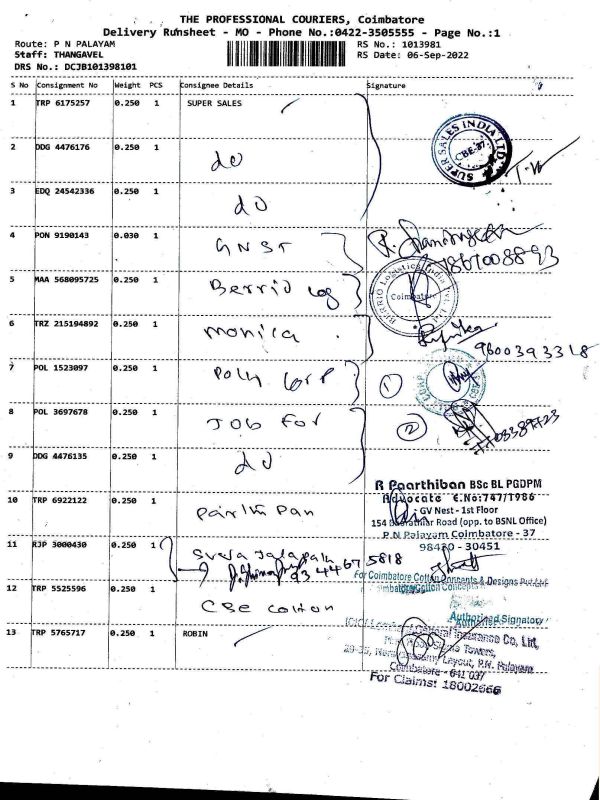 THE PROFESSIONAL COURIERS, Coimbatore
Delivery Runsheet - MO - Phone No.:0422-3505555 - Page No.:1
Route: P N PALAYAM RS No.: 1013981
Staff: THANGAVEL RS Date: 06-Sep-2022
DRS No.: DCJB101398101
S No Consignment No Weight PCS Consignee Details Signature
1 TRP 6175257 0.250 1 SUPER SALES
SUPER SALES INDIA LTD
CBE-37
2 DDG 4476176 0.250 1 do
3 EDQ 24542336 0.250 1 do
4 PON 9190143 0.030 1 GNST
5 MAA 568095725 0.250 1 Berrio Log
BERRIO Logistics India Pvt Ltd
Coimbatore
6 TRZ 215194892 0.250 1 monica
9600393318
7 POL 1523097 0.250 1 Poly Corp
1
8 POL 3697678 0.250 1 JOB For
2
9 DDG 4476135 0.250 1 do
R Paarthiban BSc BL PGDPM
Advocate E.No:747/1986
GV Nest - 1st Floor
10 TRP 6922122 0.250 1
154 Road (opp. to BSNL Office)
P.N Palayam Coimbatore - 37
98430 - 30451
11 RJP 3000430 0.250 1
93 4467 5818
For Coimbatore Cotton Concepts & Designs Pvt Ltd
12 TRP 5525596 0.250 1 CBE cotton
Authorised Signatory
13 TRP 5765717 0.250 1 ROBIN
ICICI General Insurance Co, Ltd,
Towers,
Layout, P.N. Palayam
Coimbatore - 641 037
For Claims: 18002666